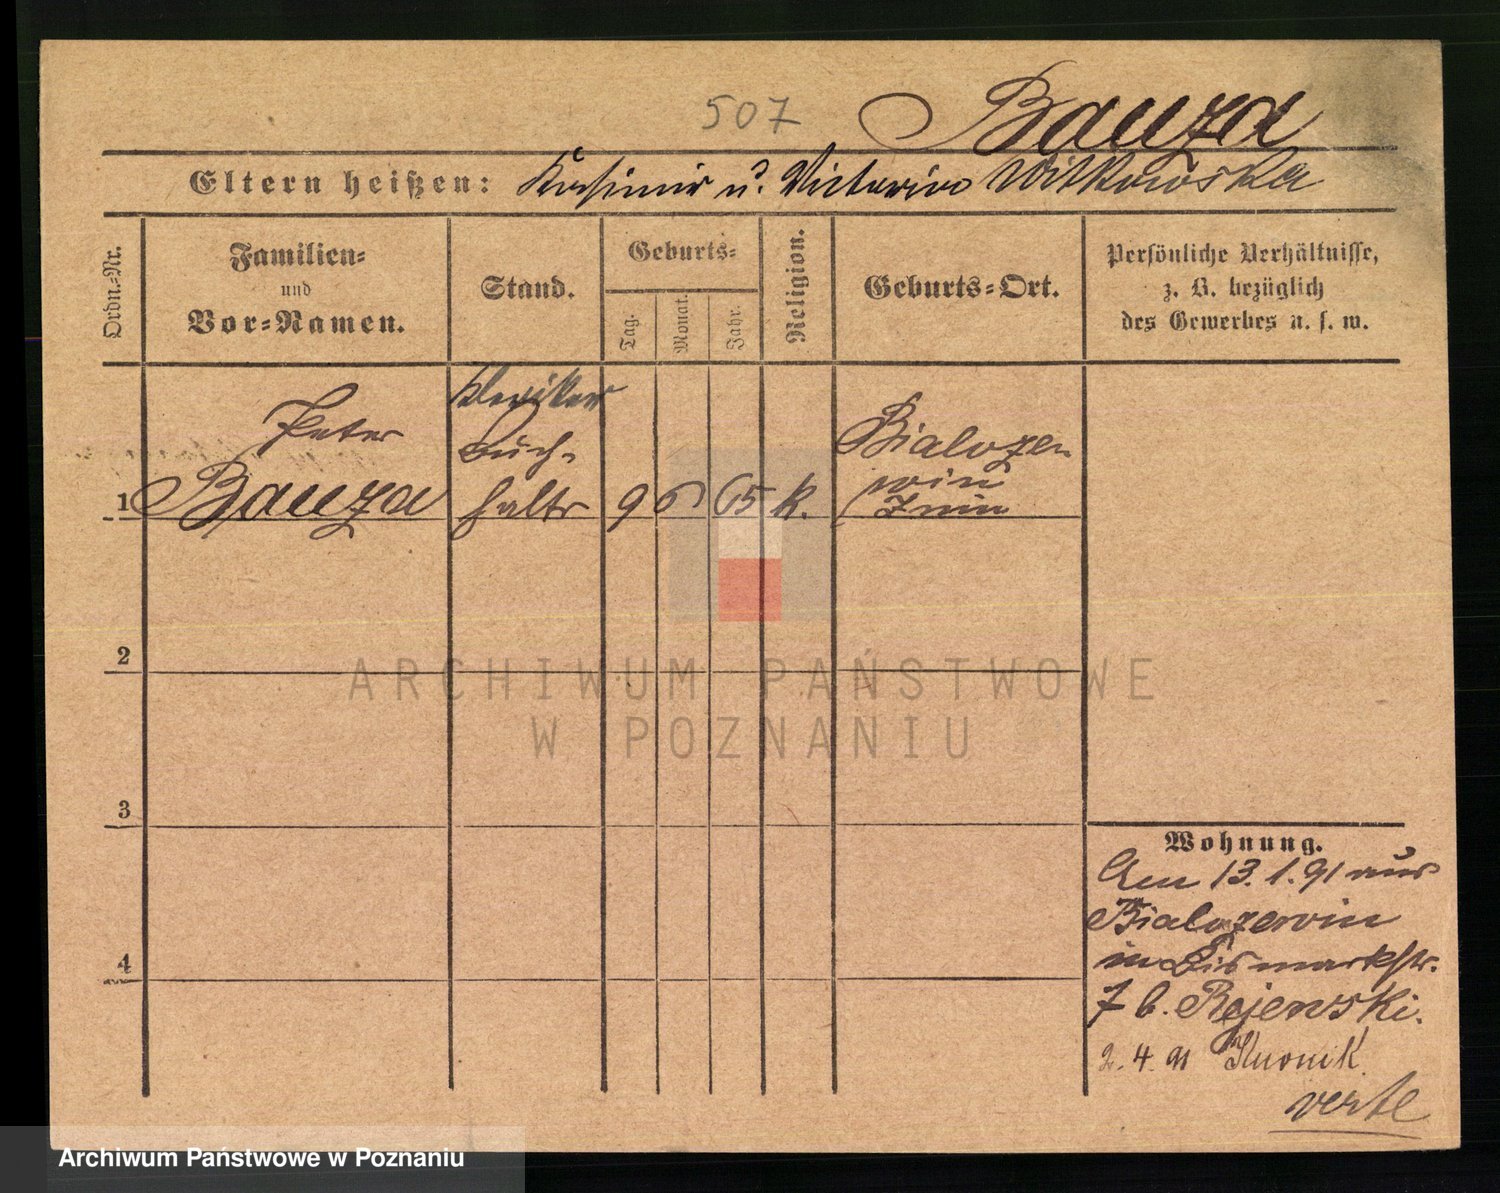 507 Bauza
Eltern heißen: Kasimir u. Victoria Witkowska
Ordn.-Nr.
Familien-
und
Vor-Namen.
Stand.
Geburts-
Tag.
Monat.
Jahr.
Religion.
Geburts-Ort.
Persönliche Verhältnisse,
z. B. bezüglich
des Gewerbes u. s. w.
Peter
1 Bauza
Kleriker
Buch-
halter
9 6 65 k.
Bialozer
win
Znin
2
3
4
Wohnung.
Am 13.1.91 aus
Bialozewin
in Bismarkstr.
7 b. Rejewski.
2.4.91
verte
ARCHIWUM PAŃSTWOWE
W POZNANIU
Archiwum Państwowe w Poznaniu